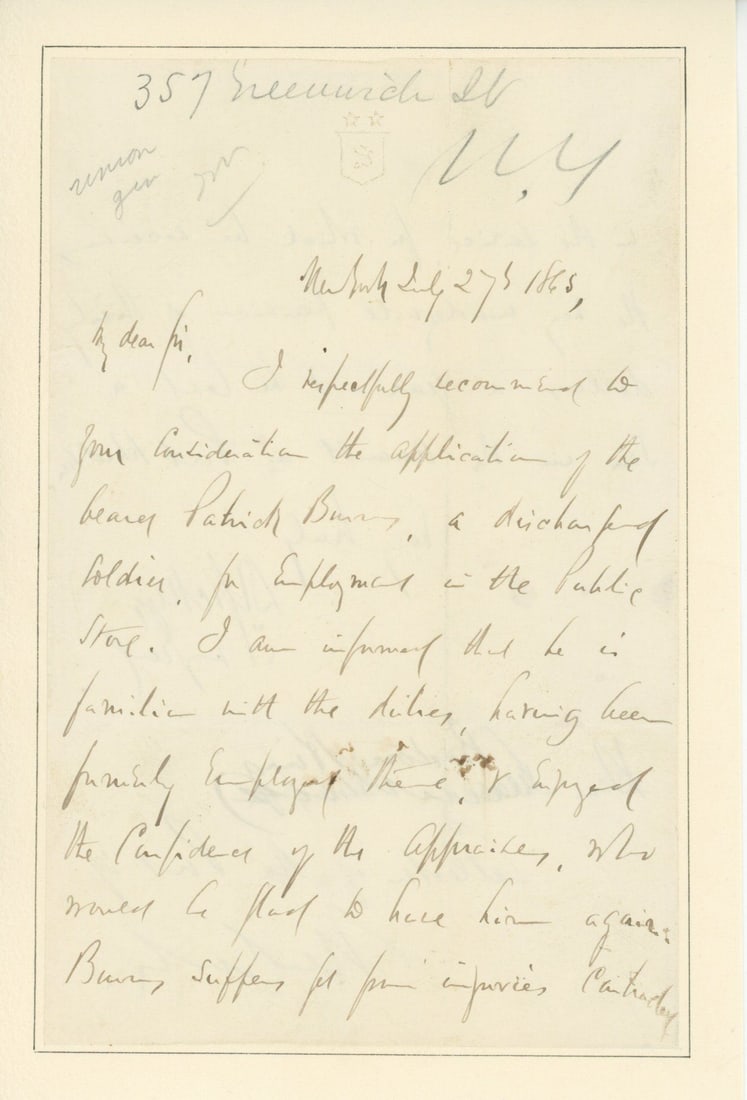 357 Greenwich St
N.Y
union
gen
New York July 27th 1865,
My dear Sir,
I respectfully recommend to
your Consideration the application of the
bearer Patrick Burns, a discharged
Soldier, for Employment in the Public
Store. I am informed that he is
familiar with the duties, having been
formerly Employed there, & Enjoyed
the Confidence of the Appraisers, who
would be glad to have him again.
Burns suffers yet from injuries Contracted